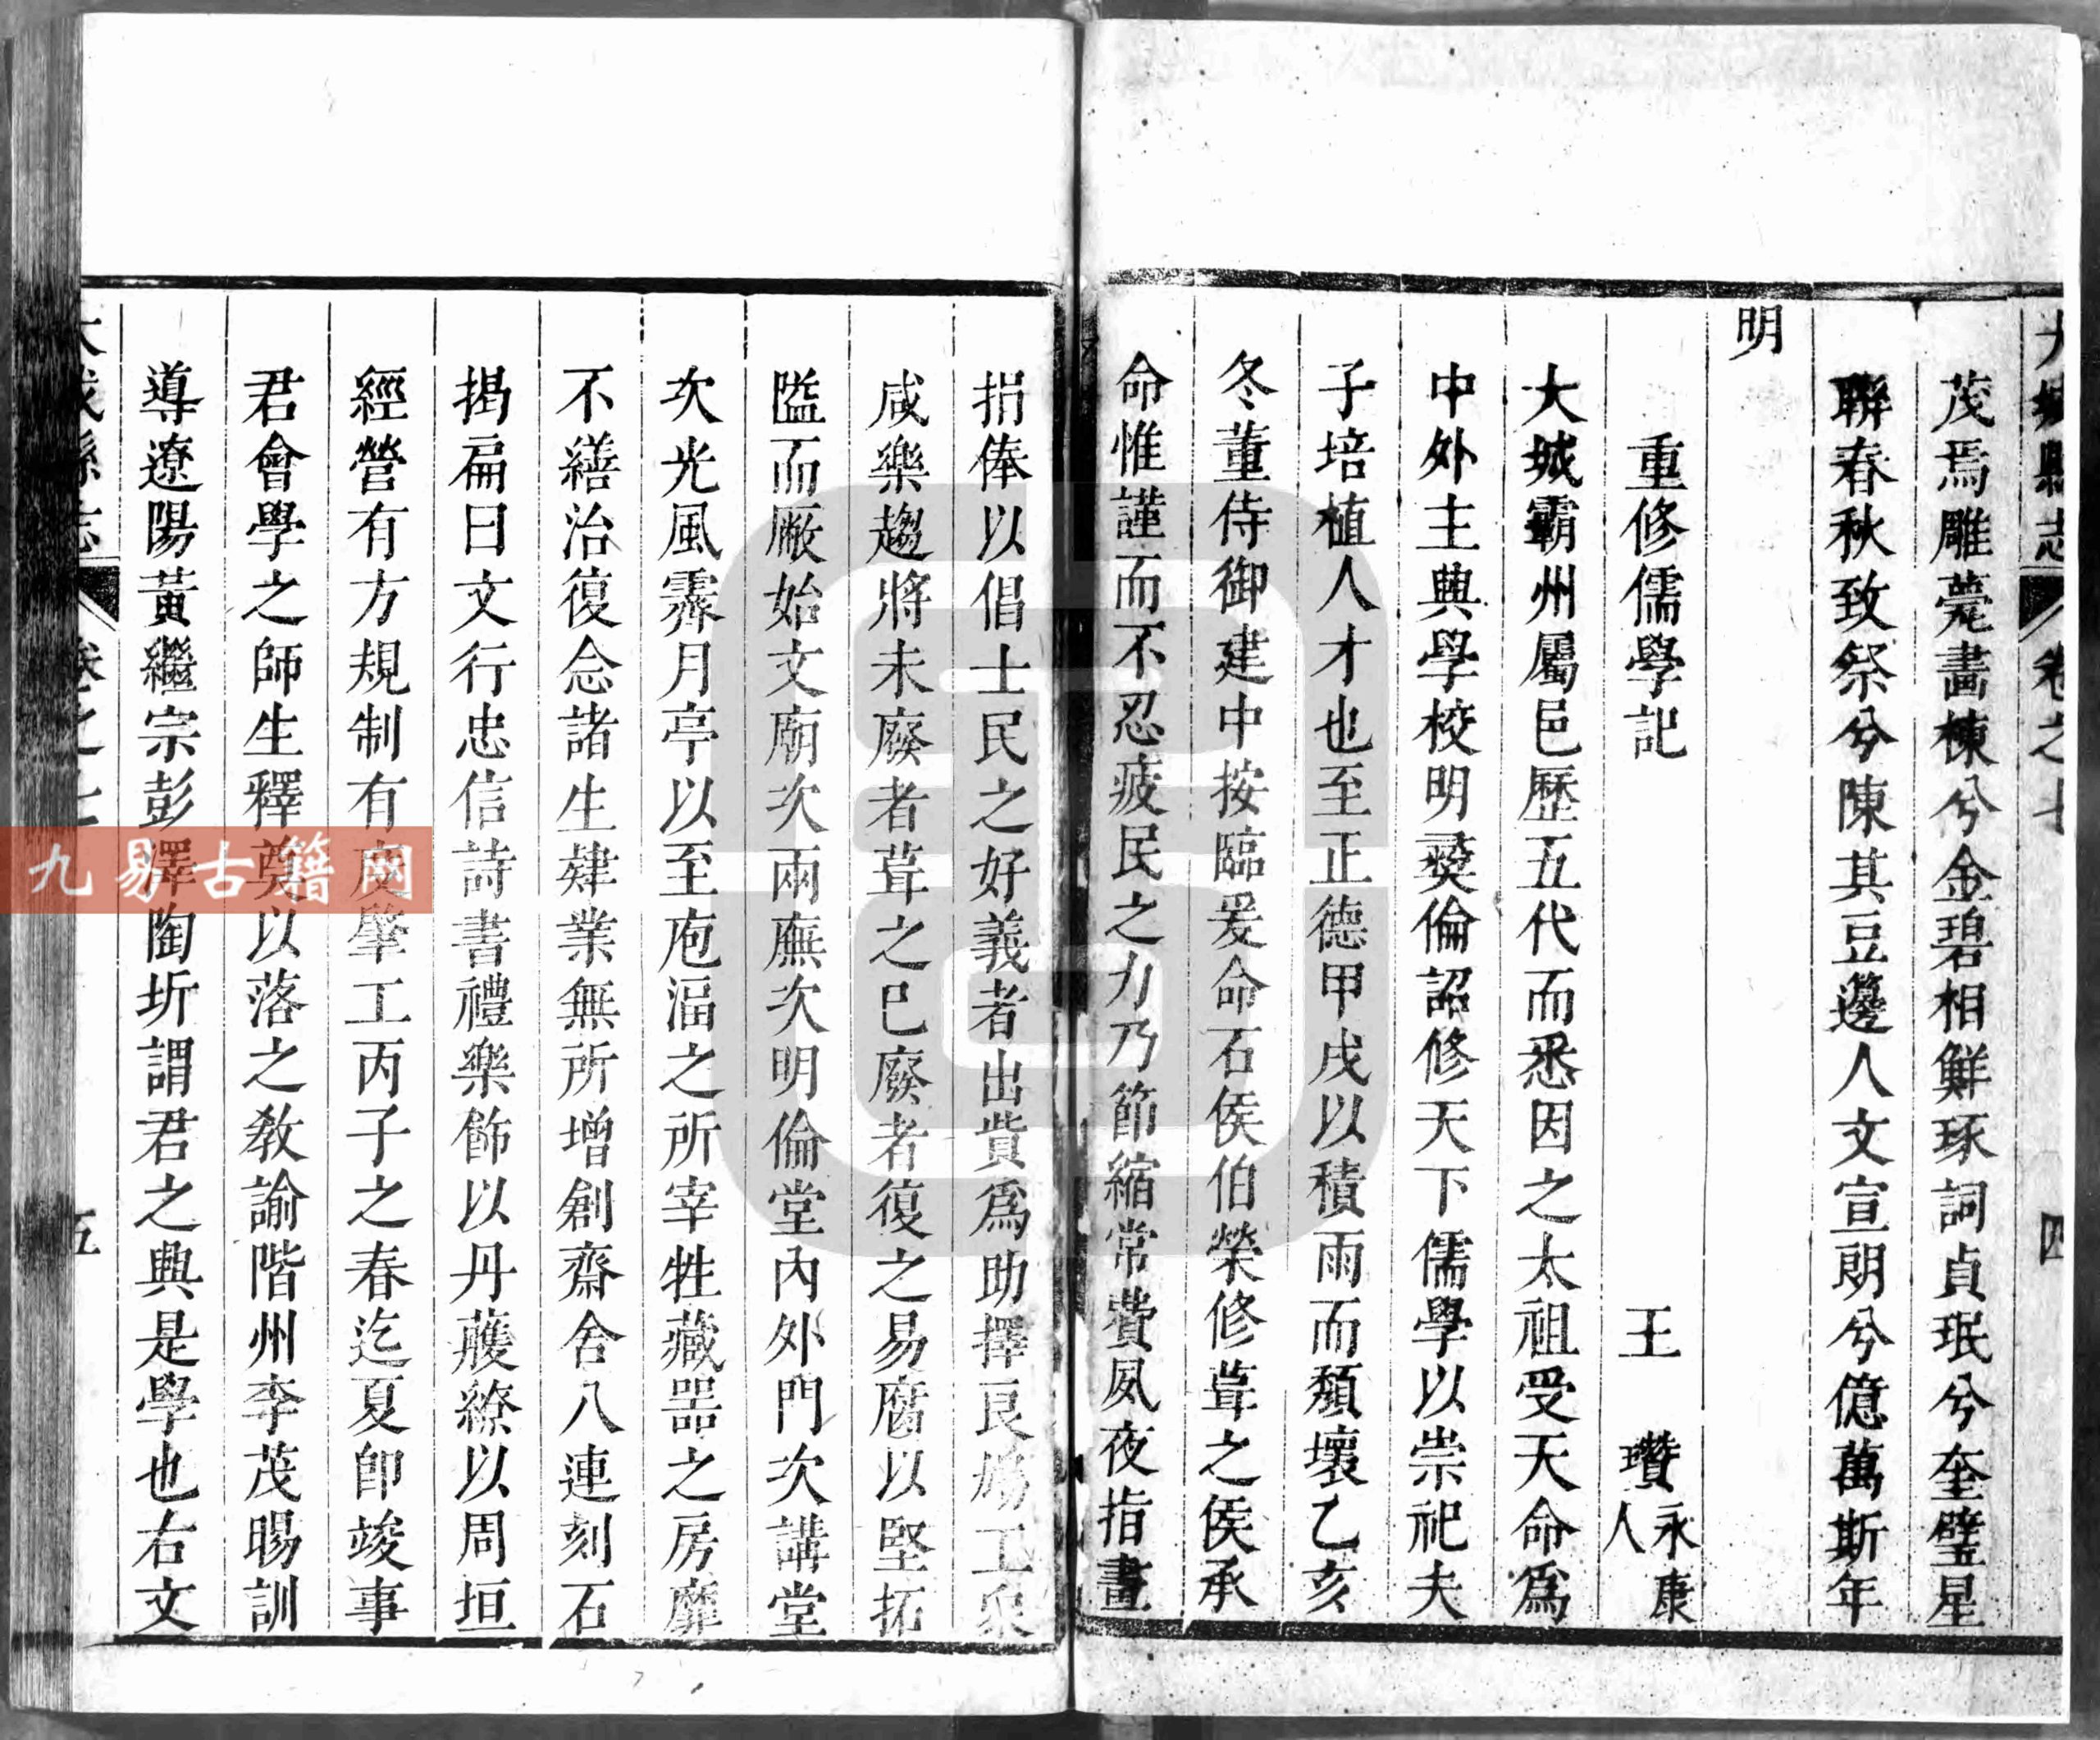 大城縣志 卷之七 四
茂焉雕薨畵棟兮金碧相鮮琢詞貞珉兮奎璧星
聯春秋致祭兮陳其豆籩人文宣朗兮億萬斯年
明
重修儒學記 王瓚永康人
大城霸州屬邑歷五代而悉因之太祖受天命爲
中外主典學校明彛倫詔修天下儒學以崇祀夫
子培植人才也至正德甲戌以積雨而頽壞乙亥
冬董侍御建中按臨爰命石侯伯榮修葺之侯承
命惟謹而不忍疲民之力乃節縮常費夙夜指畫
捐俸以倡士民之好義者出貲爲助擇良鳩工衆
咸樂趨將未廢者葺之已廢者復之易腐以堅拓
隘而厰始文廟次兩廡次明倫堂內外門次講堂
次光風霽月亭以至庖湢之所宰牲藏噐之房靡
不繕治復念諸生肄業無所增創齋舍八連刻石
揭扁曰文行忠信詩書禮樂飾以丹雘繚以周垣
經營有方規制有度肇工丙子之春迄夏卽竣事
君會學之師生釋奠以落之敎諭階州李茂暘訓
導遼陽黃繼宗彭澤陶圻謂君之典是學也右文
大城縣志 卷之七 五
九易古籍网